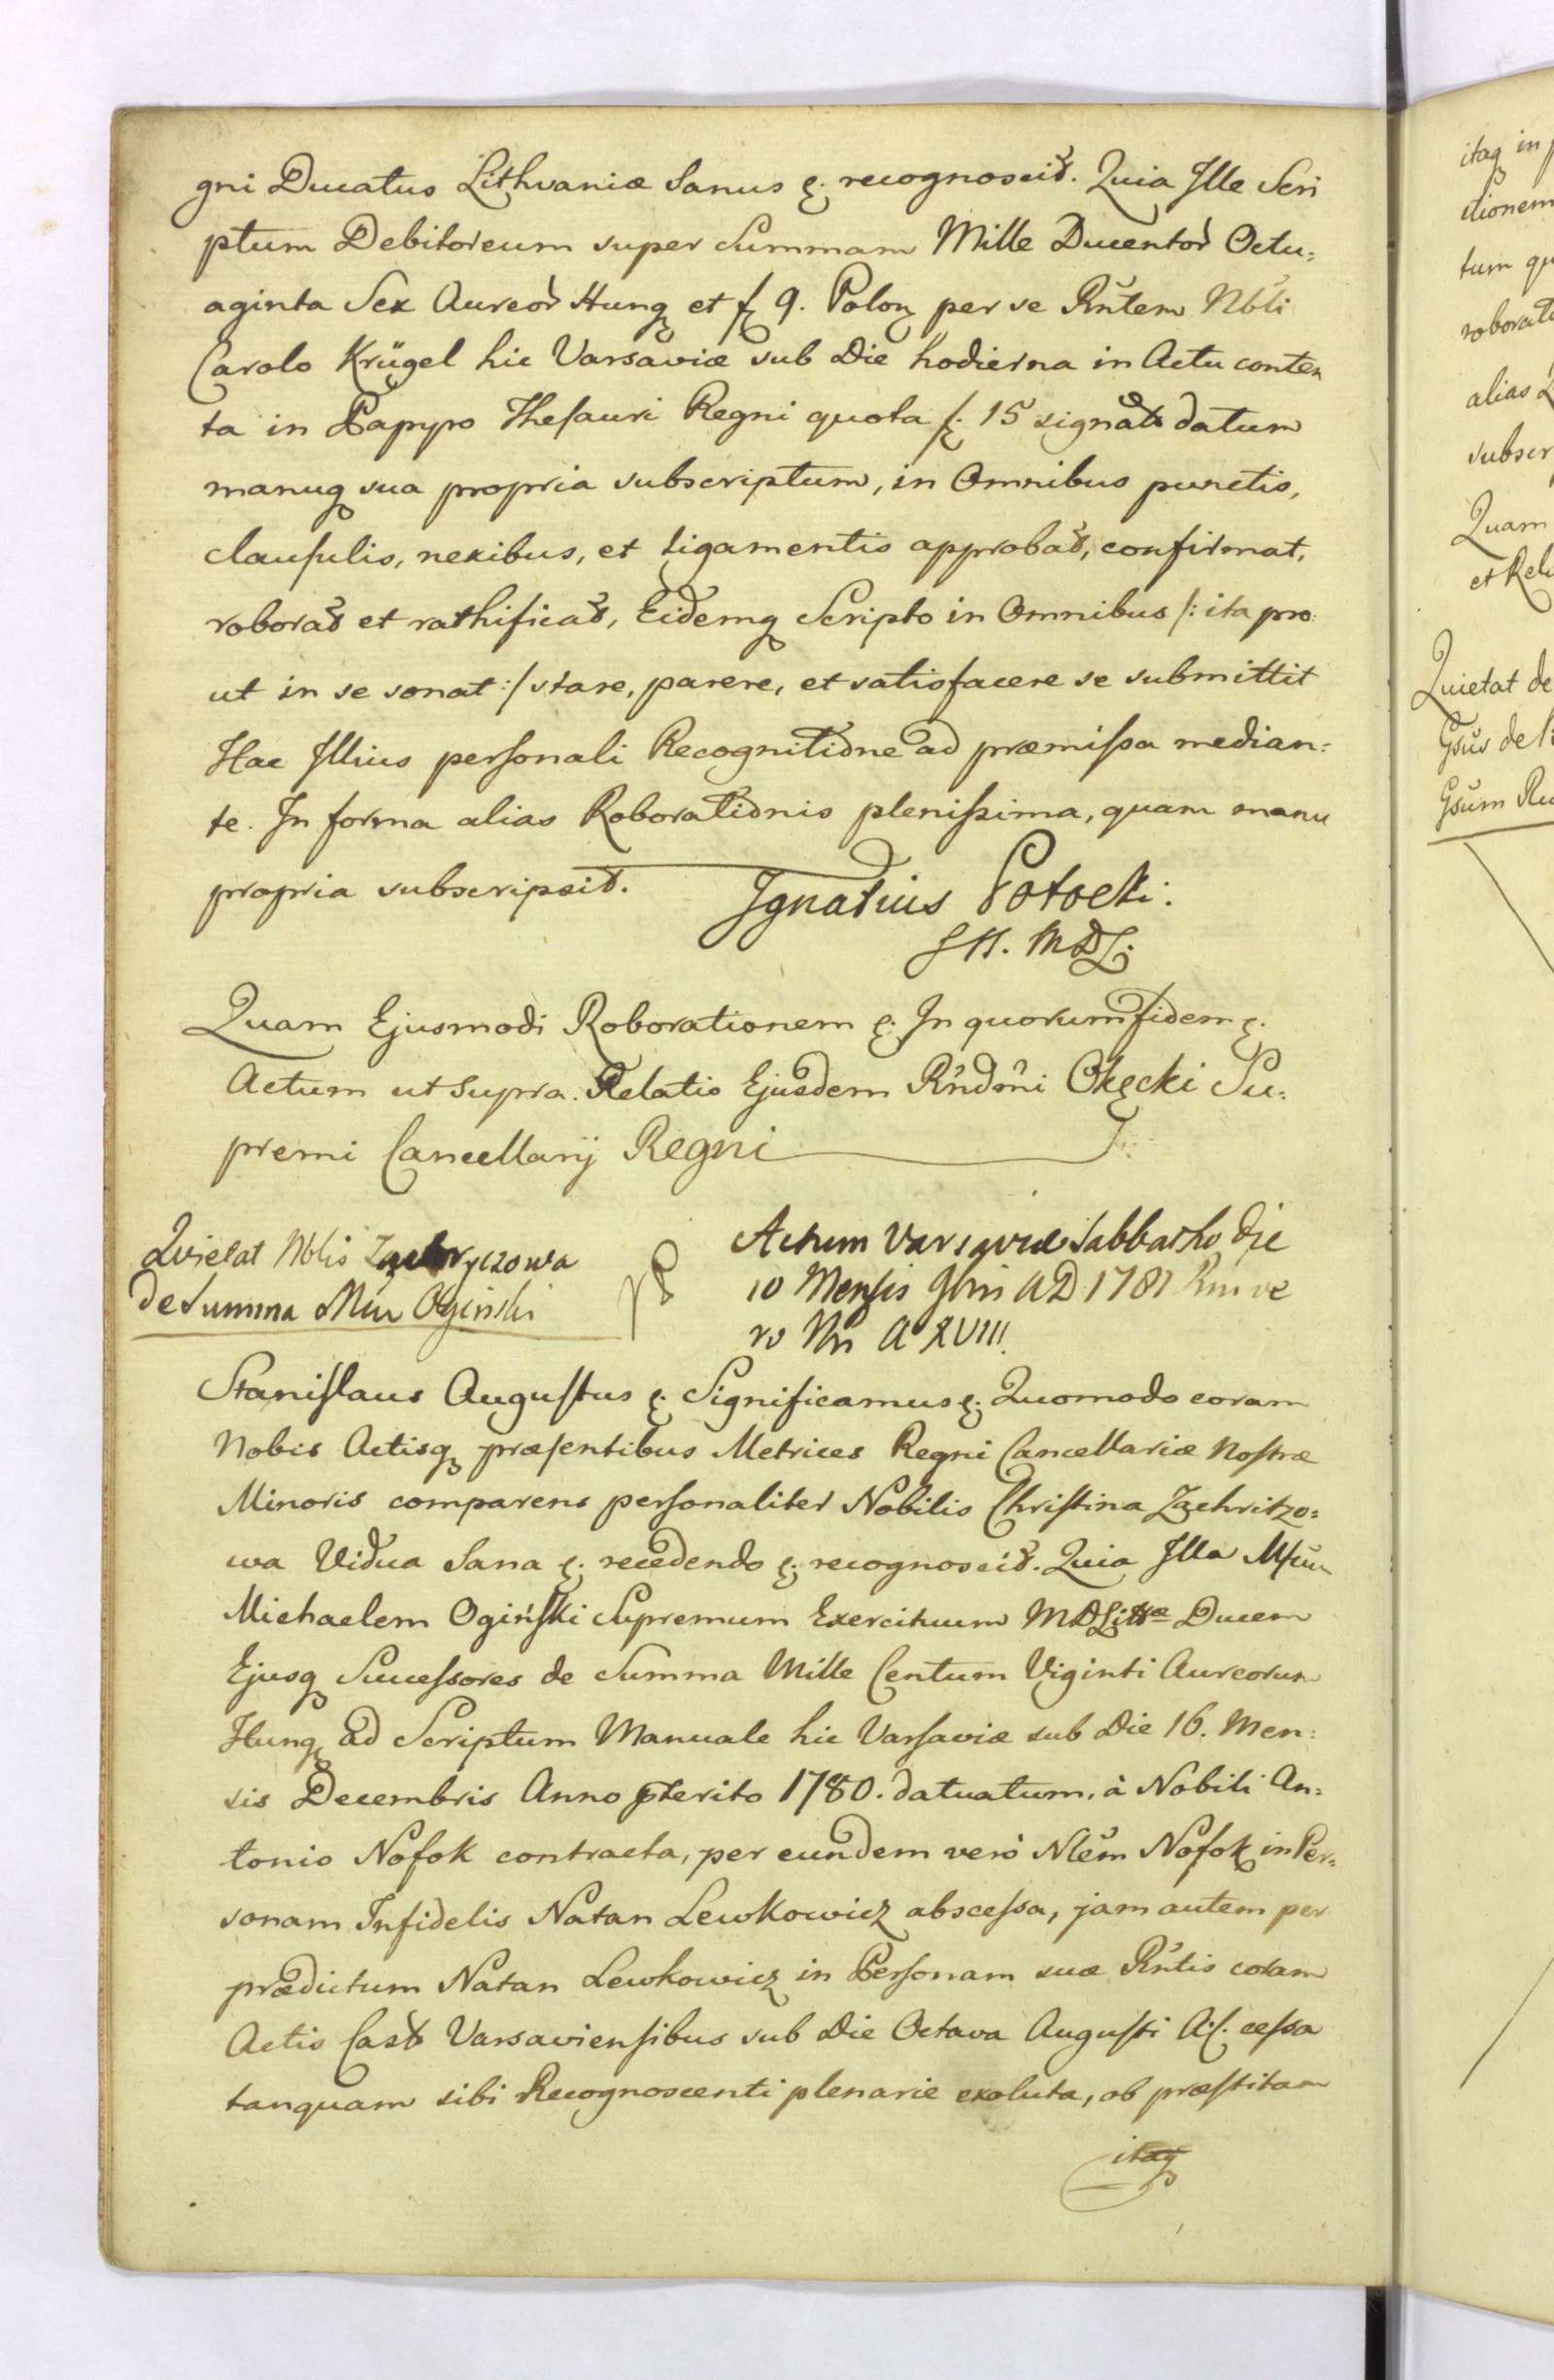 gni Ducatus Lithvaniæ Sanus &. recognoscit. Quia Ille Scri
ptum Debitoreum super Summam Mille Ducentor Octu:
aginta Sex Aureor Hung et f 9. Polon per se Rñtem Nbli
Carolo Krügel hic Varsaviæ sub Die hodierna in Actu conten
ta in Papyro Thesauri Regni quota f. 15 signat datum
manuq sua propria subscriptum, in Omnibus punctis,
clausulis, nexibus, et ligamentis approbat, confirmat,
roborat et rathificat, Eidemq Scripto in Omnibus /: ita pro
ut in se sonat :/ stare, parere, et satisfacere se submittit
Hac Illius personali Recognitione ad præmissa median:
te. In forma alias Roborationis plenissima, quam manu
propria subscripsit. Ignatius Potocki.
M D L.
Quam Ejusmodi Roborationem &. In quorum fidem &.
Actum ut supra. Relatio Ejusdem Rñdmi Okęcki Su:
premi Cancellarij Regni
Quietat Nblis
de Summa Mm Oginski
Actum Varsaviæ Sabbatho die
10 Mensis 9bris AD 1781 Rni ve
ro Nri A XVIII.
Stanislaus Augustus &. Significamus &. Quomodo coram
Nobis Actisq præsentibus Metrices Regni Cancellariæ Nostræ
Minoris comparens personaliter Nobilis Christina Zachritzo:
wa Vidua Sana &. recedendo &. recognoscit. Quia Illa Mfcum
Michaelem Ogiński Supremum Exercituum MDLittæ Ducem
Ejusq Successores de Summa Mille Centum Viginti Aureorum
Hung ad Scriptum Manuale hic Varsaviæ sub Die 16. Men:
sis Decembris Anno pterito 1780. datuatum, à Nobili An:
tonio Nofok contracta, per eundem verò Nlem Nofok in Per:
sonam Infidelis Natan Lewkowicz abscessa, jam autem per
prædictum Natan Lewkowicz in Personam suæ Rñtis coram
Actis Cast Varsaviensibus sub Die Octava Augusti A.c. cessa
tanquam sibi Recognoscenti plenarie exoluta, ob præstitam
itaq
itaq in
ctionem
tum qu
roborat
alias
subscr
Quam
et Rel
Quietat de
Gsus de
Gsum